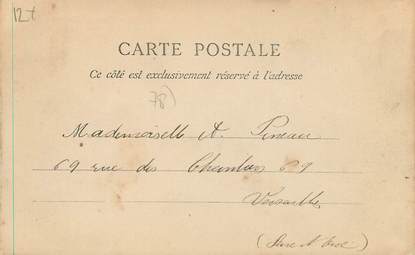 12t
CARTE POSTALE
Ce côté est exclusivement réservé à l'adresse
78)
Mademoiselle A. Pineau
69 rue des Chantiers 69
Versailles
(Seine & Oise)